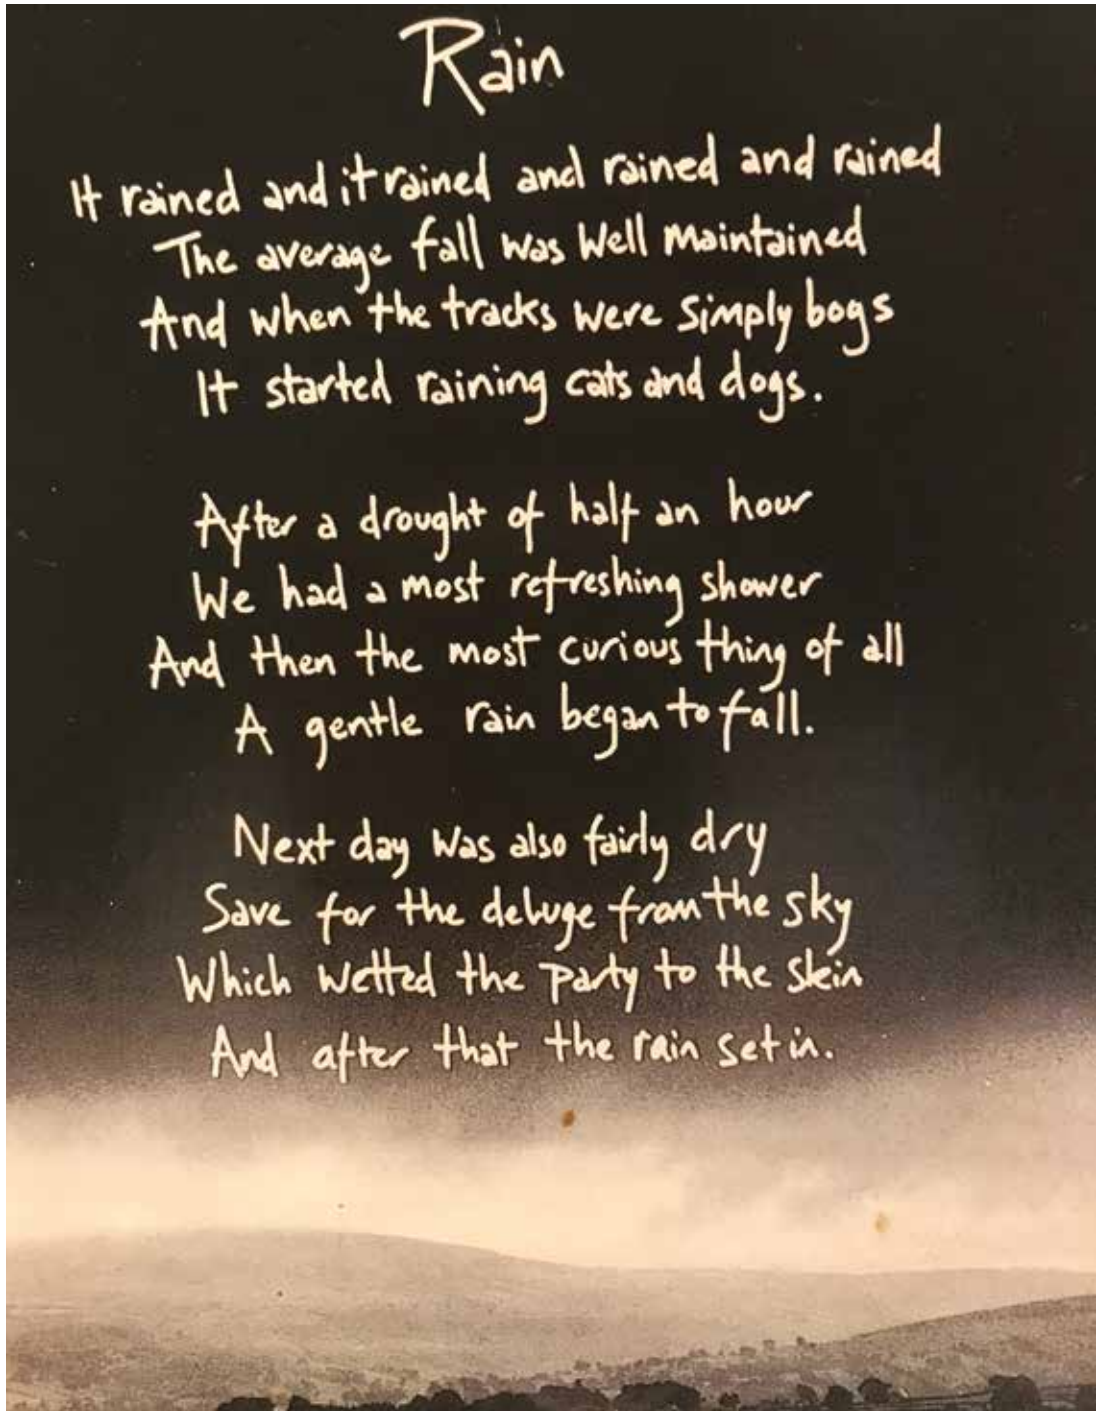 Rain
It rained and it rained and rained and rained
The average fall was well maintained
And when the tracks were simply bogs
It started raining cats and dogs.
After a drought of half an hour
We had a most refreshing shower
And then the most curious thing of all
A gentle rain began to fall.
Next day was also fairly dry
Save for the deluge from the sky
Which wetted the party to the skin
And after that the rain set in.